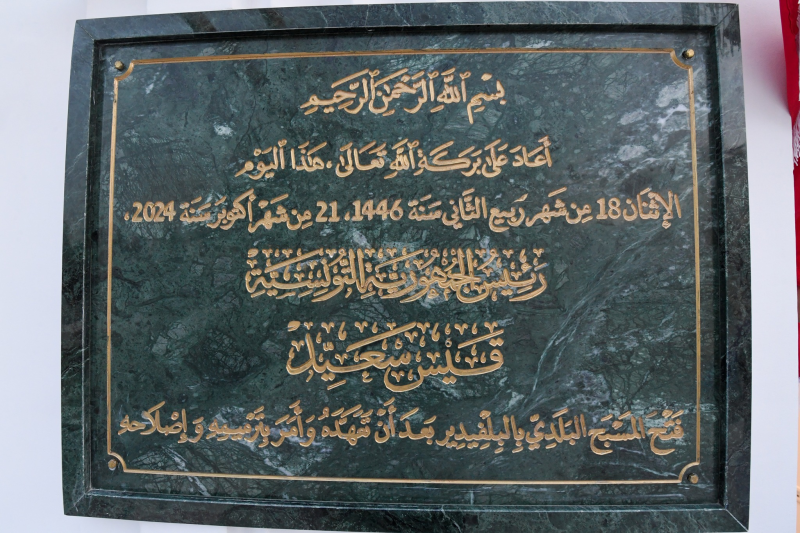 بِسْمِ ٱللَّهِ ٱلرَّحْمَٰنِ ٱلرَّحِيمِ
أَعَادَ عَلَىٰ بَرَكَةِ ٱللَّهِ تَعَالَىٰ، هَٰذَا ٱلْيَوْمَ
الإثْنَان 18 مِن شَهر رَبيع الثَّاني سَنَة 1446، 21 مِن شَهْر أُكْتوبَر سَنَة 2024،
رَئِيسُ الجُمْهُورِيَّةِ التُّونِسِيَّةِ
قَيْس سَعَيِّد
فَتْحَ المَسْبَحِ البَلَدِيِّ بِالبِلْفِيدِيرِ بَعدَ أَنْ تَعَهَّدَهُ وَأَمَرَ بِتَرْمِيمِهِ وَإِصْلَاحِهِ